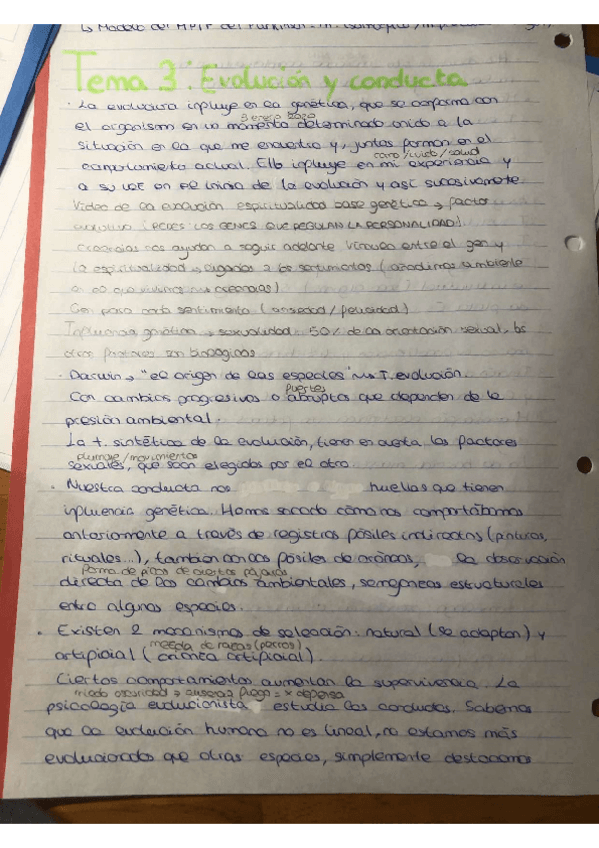 ↳ Modelo del MPTP del Parkinson
Tema 3: Evolución y conducta
· La evolución influye en la genética, que se conforma con
3 enero 2020
el organismo en un momento determinado unido a la
situación en la que me encuentro y, juntas forman en el
comportamiento actual. Ello influye en mi experiencia y
a su vez en el inicio de la evolución y así sucesivamente.
Video de la evolución espiritualidad base genética → factor
evolutivo (REDES: LOS GENES QUE REGULAN LA PERSONALIDAD).
creencias nos ayudan a seguir adelante. Vínculo entre el gen y
la espiritualidad → ligados a los sentimientos (añadimos ambiente
en el que vivimos
Gen para cada sentimiento (ansiedad / felicidad)
Influencia genética → sexualidad. 50% de la orientación sexual, los
otros factores son biológicos
· Darwin → "el origen de las especies" T. evolución.
fuertes
Con cambios progresivos o abruptos que dependen de la
presión ambiental.
La t. sintética de la evolución, tienen en cuenta los factores
plumaje / movimientos
sexuales, que sean elegidos por el otro
· Nuestra conducta nos huellas que tienen
influencia genética. Hemos sacado cómo nos comportábamos
anteriormente a través de registros fósiles indirectos (pinturas,
rituales...), también con los fósiles de cráneos, la observación
forma de picos de ciertos pájaros
directa de los cambios ambientales, semejanzas estructurales
entre algunas especies.
· Existen 2 mecanismos de selección: natural (se adaptan) y
mezcla de razas (perros)
artificial (crianza artificial).
Ciertos comportamientos aumentan la supervivencia. La
miedo oscuridad → fuego = x defensa
psicología evolucionista estudia las conductas. Sabemos
que la evolución humana no es lineal, no estamos más
evolucionados que otras especies, simplemente destacamos